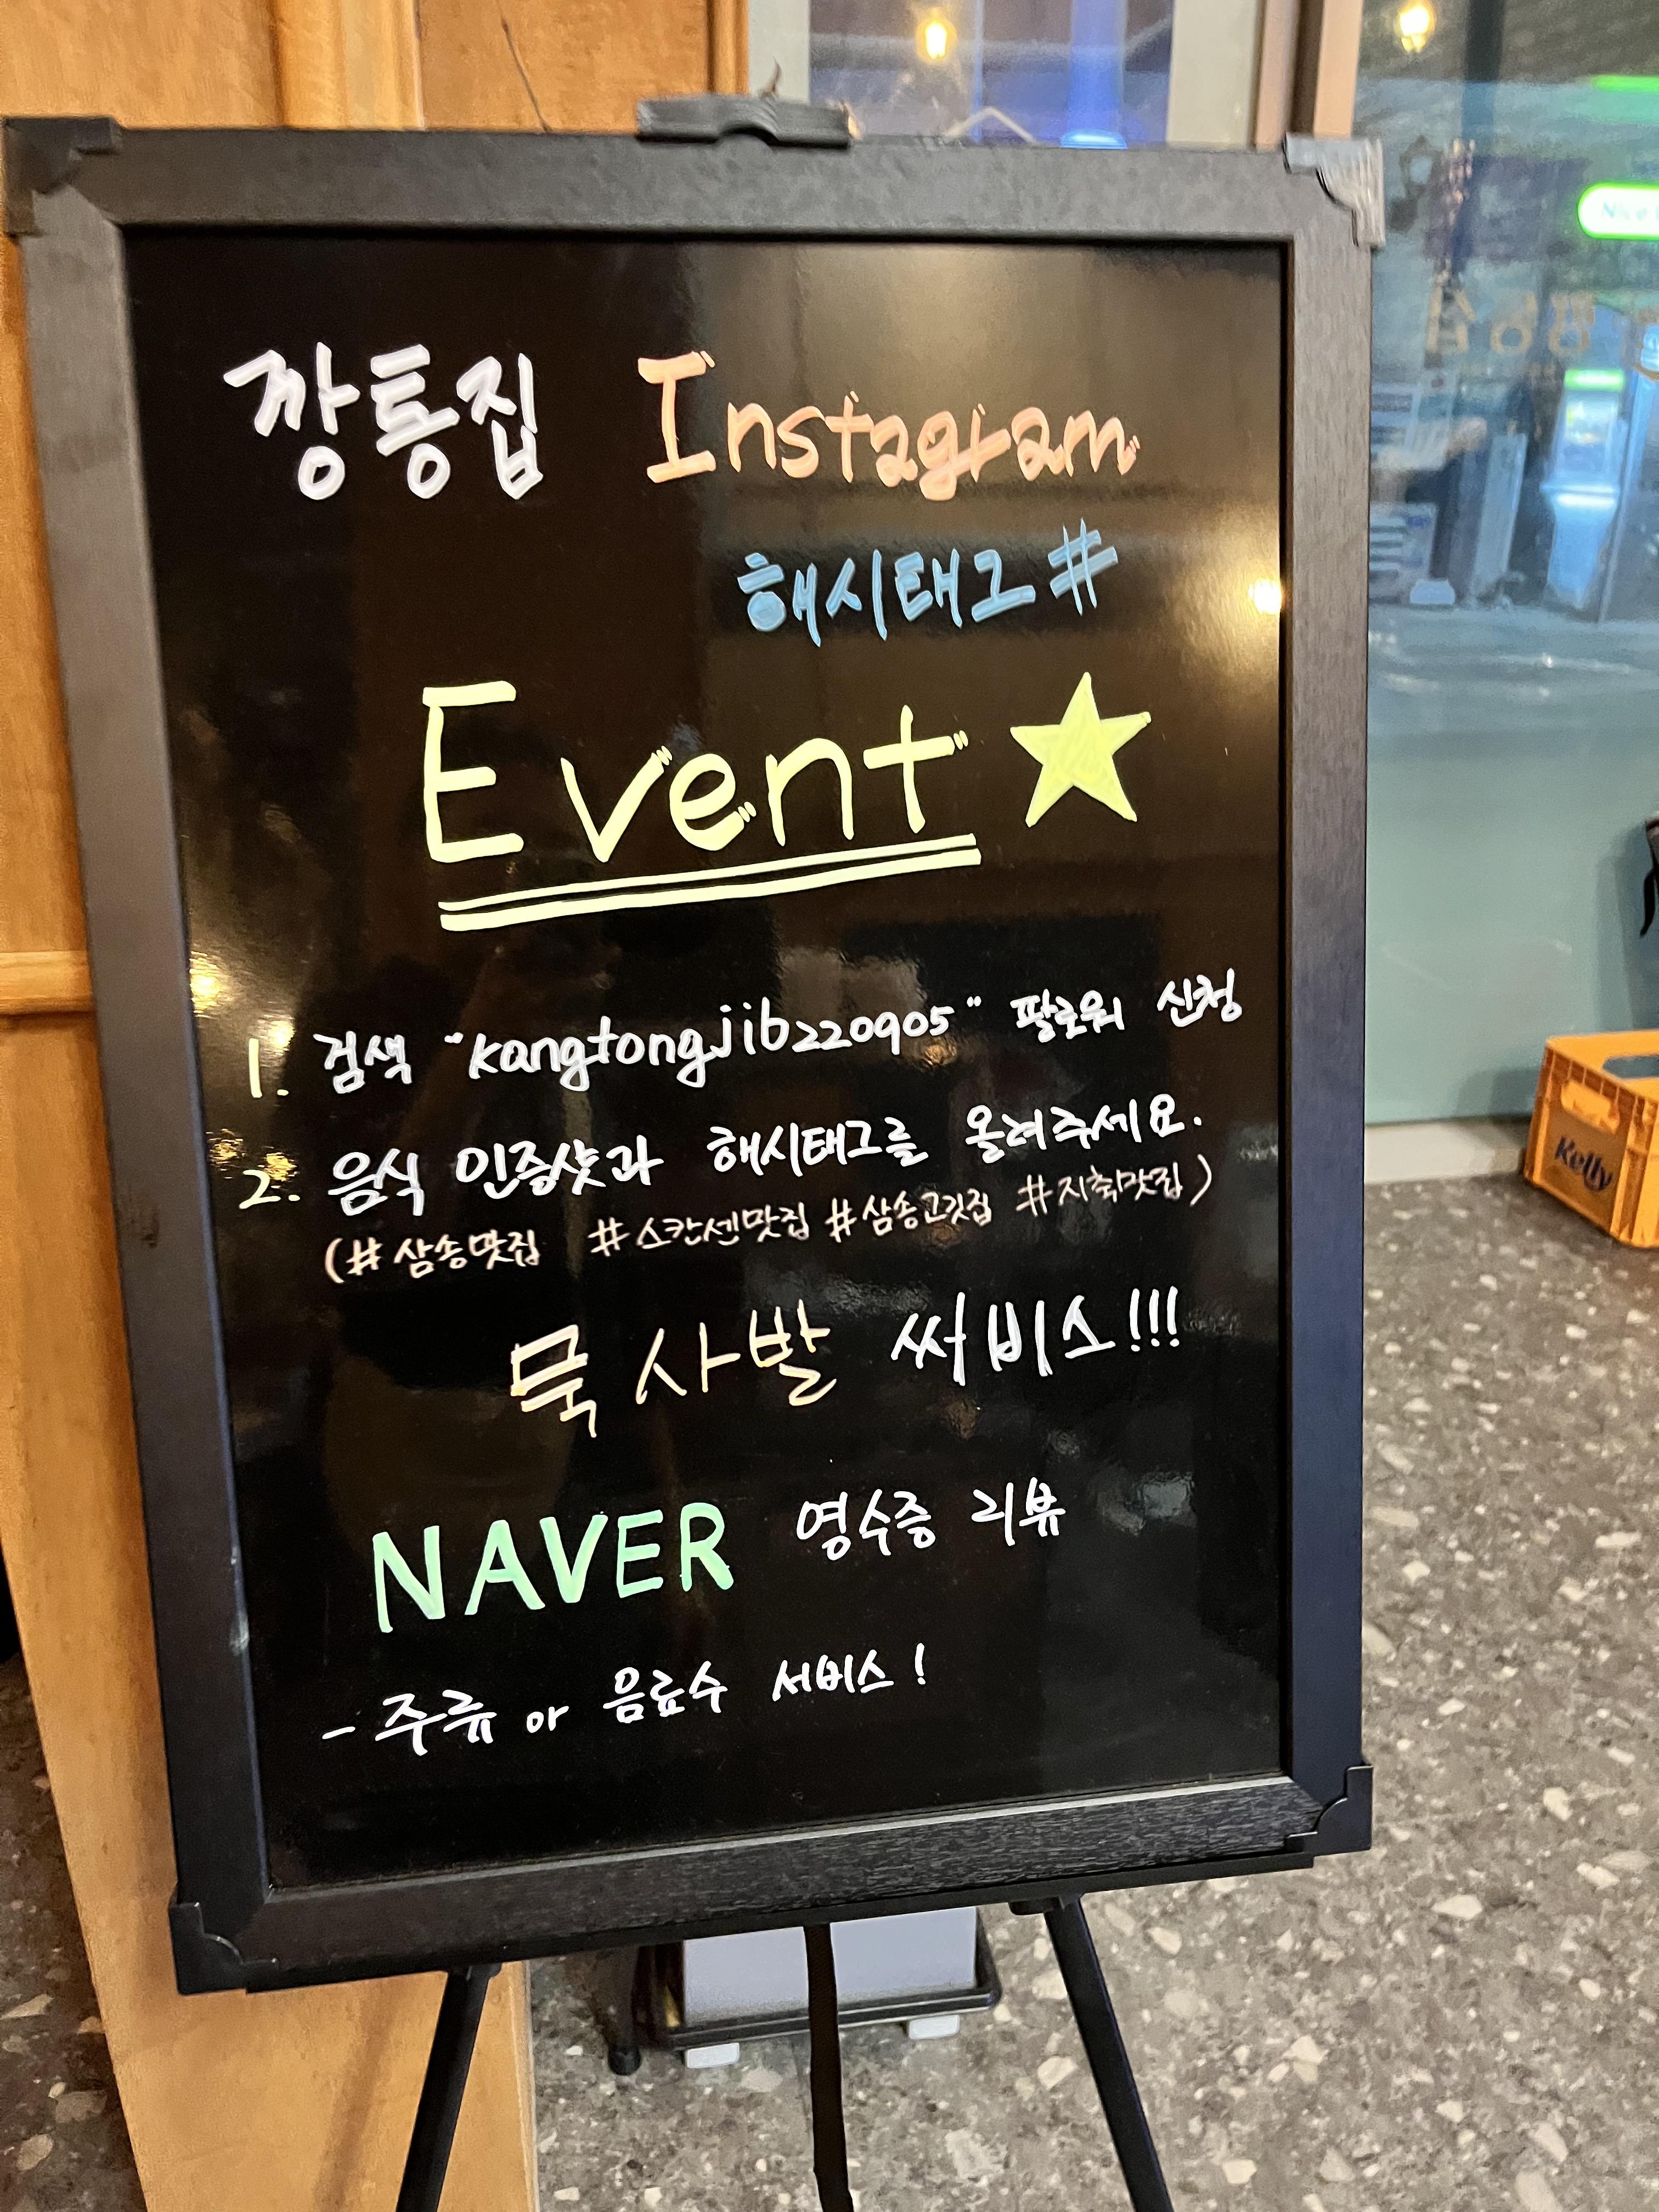 깡통집 Instagram
해시태그#
Event
1. 검색 "kangtongjib220905" 팔로워 신청
2. 음식 인증샷과 해시태그를 올려주세요.
(#삼송맛집 #스칸센맛집 #삼송고깃집 #지축맛집)
묵사발 써비스!!!
NAVER 영수증 리뷰
- 주류 or 음료수 서비스!
Kelly
Nice